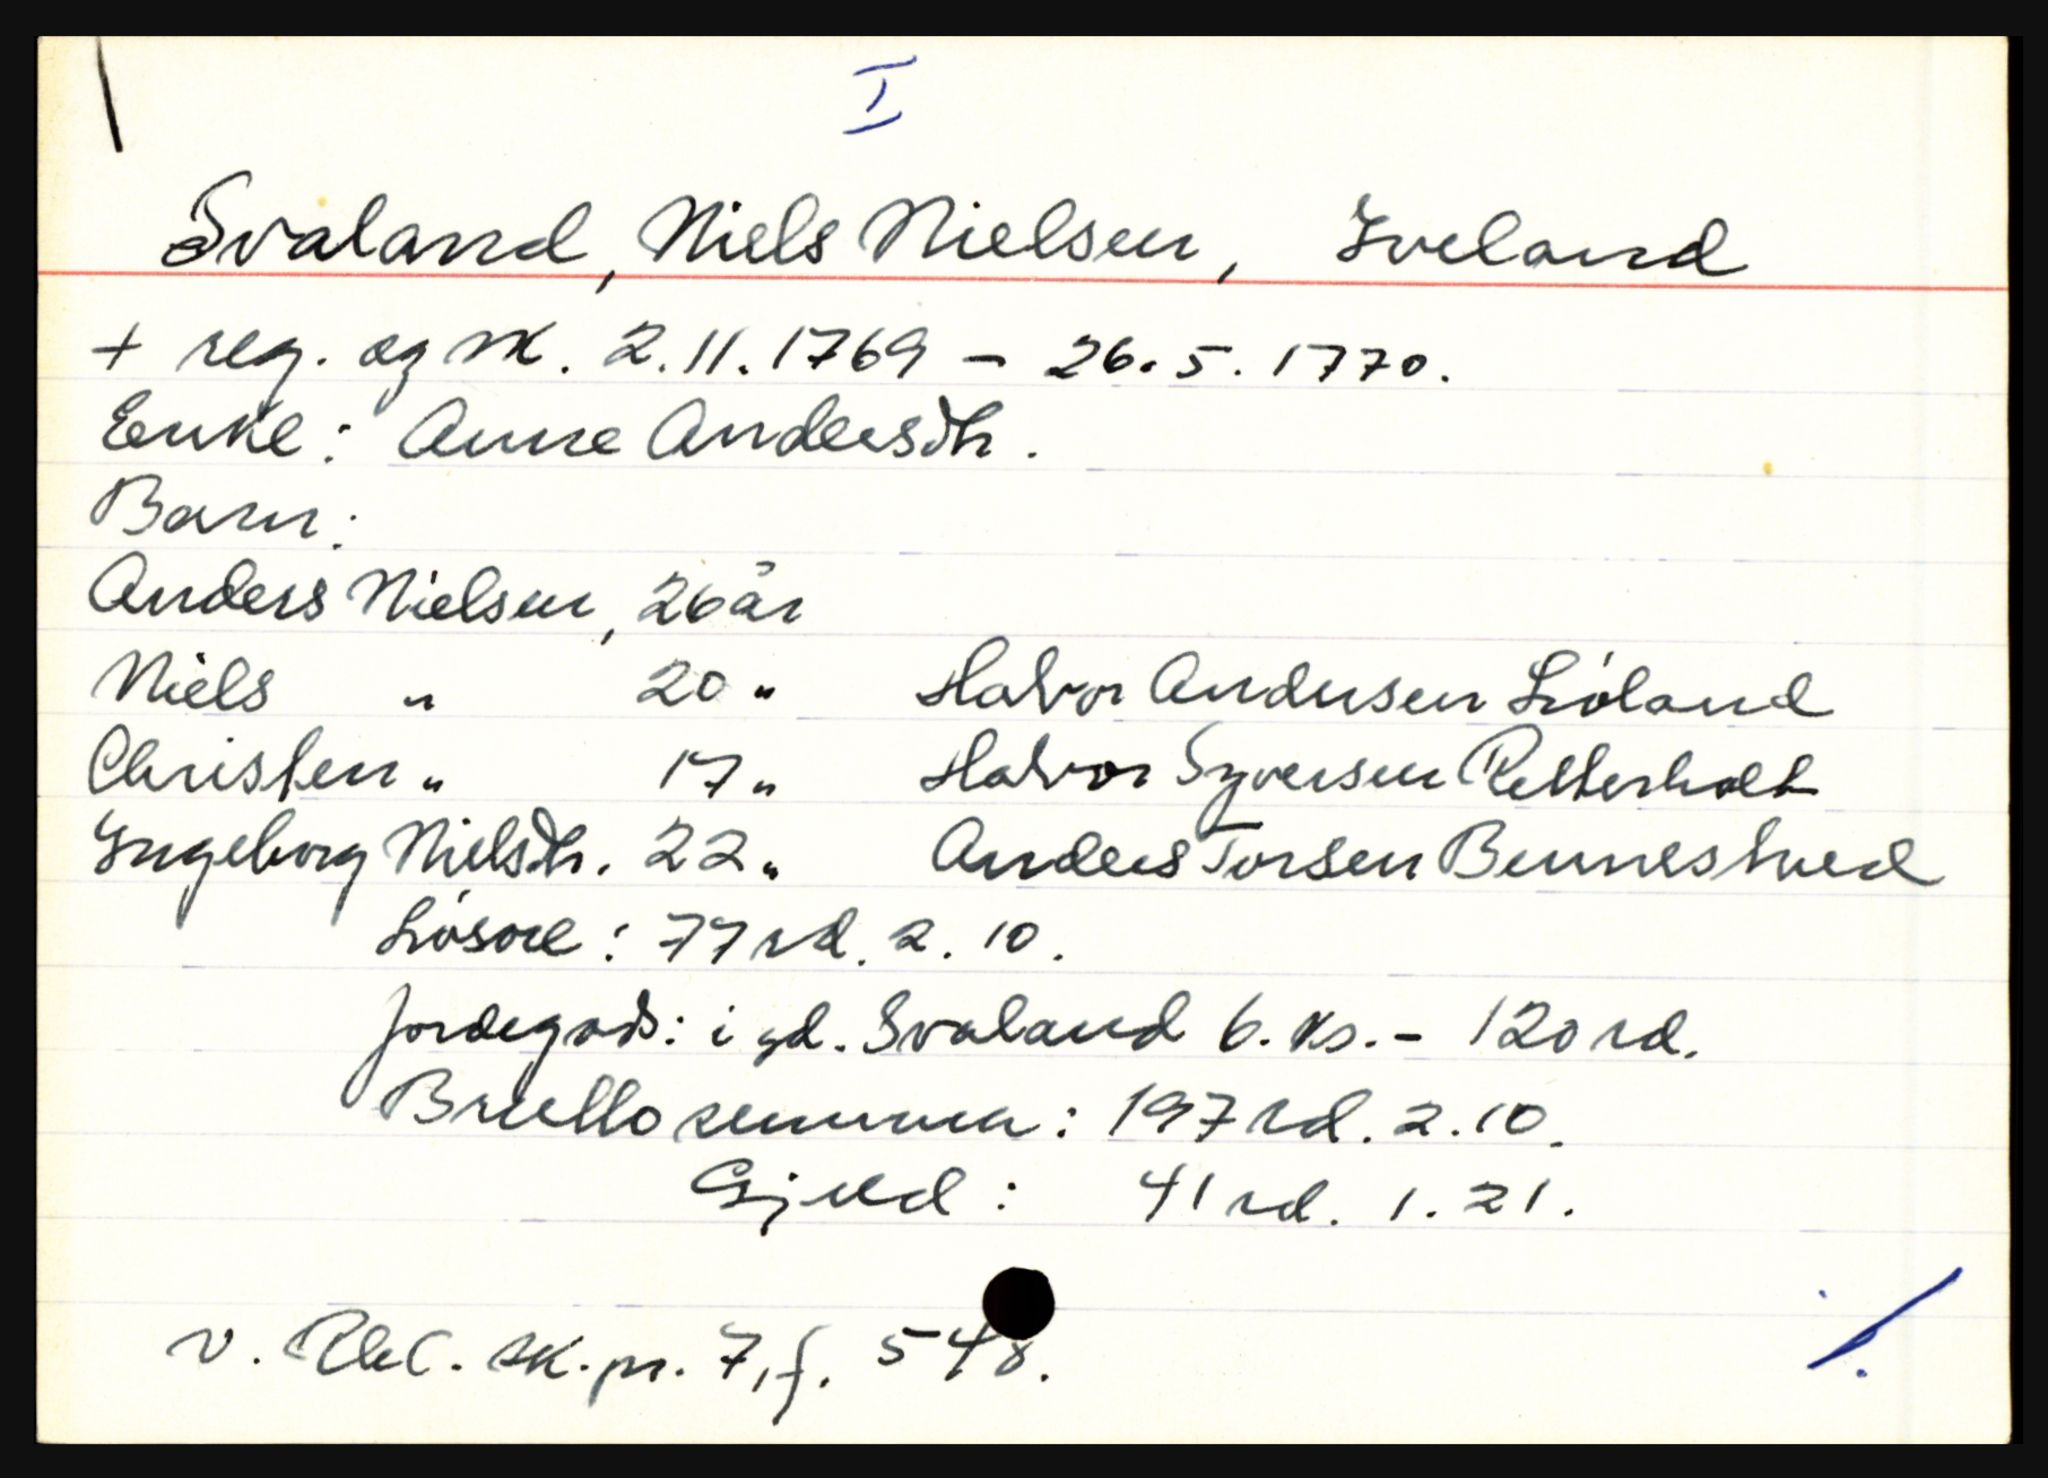 I
Svaland, Niels Nielsen, Iveland
+ reg. og sk. 2.11.1769 - 26.5.1770.
Enke: Anne Andersdtr.
Barn:
Anders Nielsen, 26 år
Niels " 20 " Halvor Andersen Lióland
Christen " 17 " Halvor Syversen Retterholt
Ingeborg Nielsdtr. 22 " Anders Torsen Bunestved
Lösöre: 77 rd. 2. 10.
Jordegods: i gd. Svaland 6. ks. - 120 rd.
Brutto summa: 197 rd. 2. 10.
Gjeld: 41 rd. 1. 21.
v. Rbl. sk. pr. 7, f. 548.